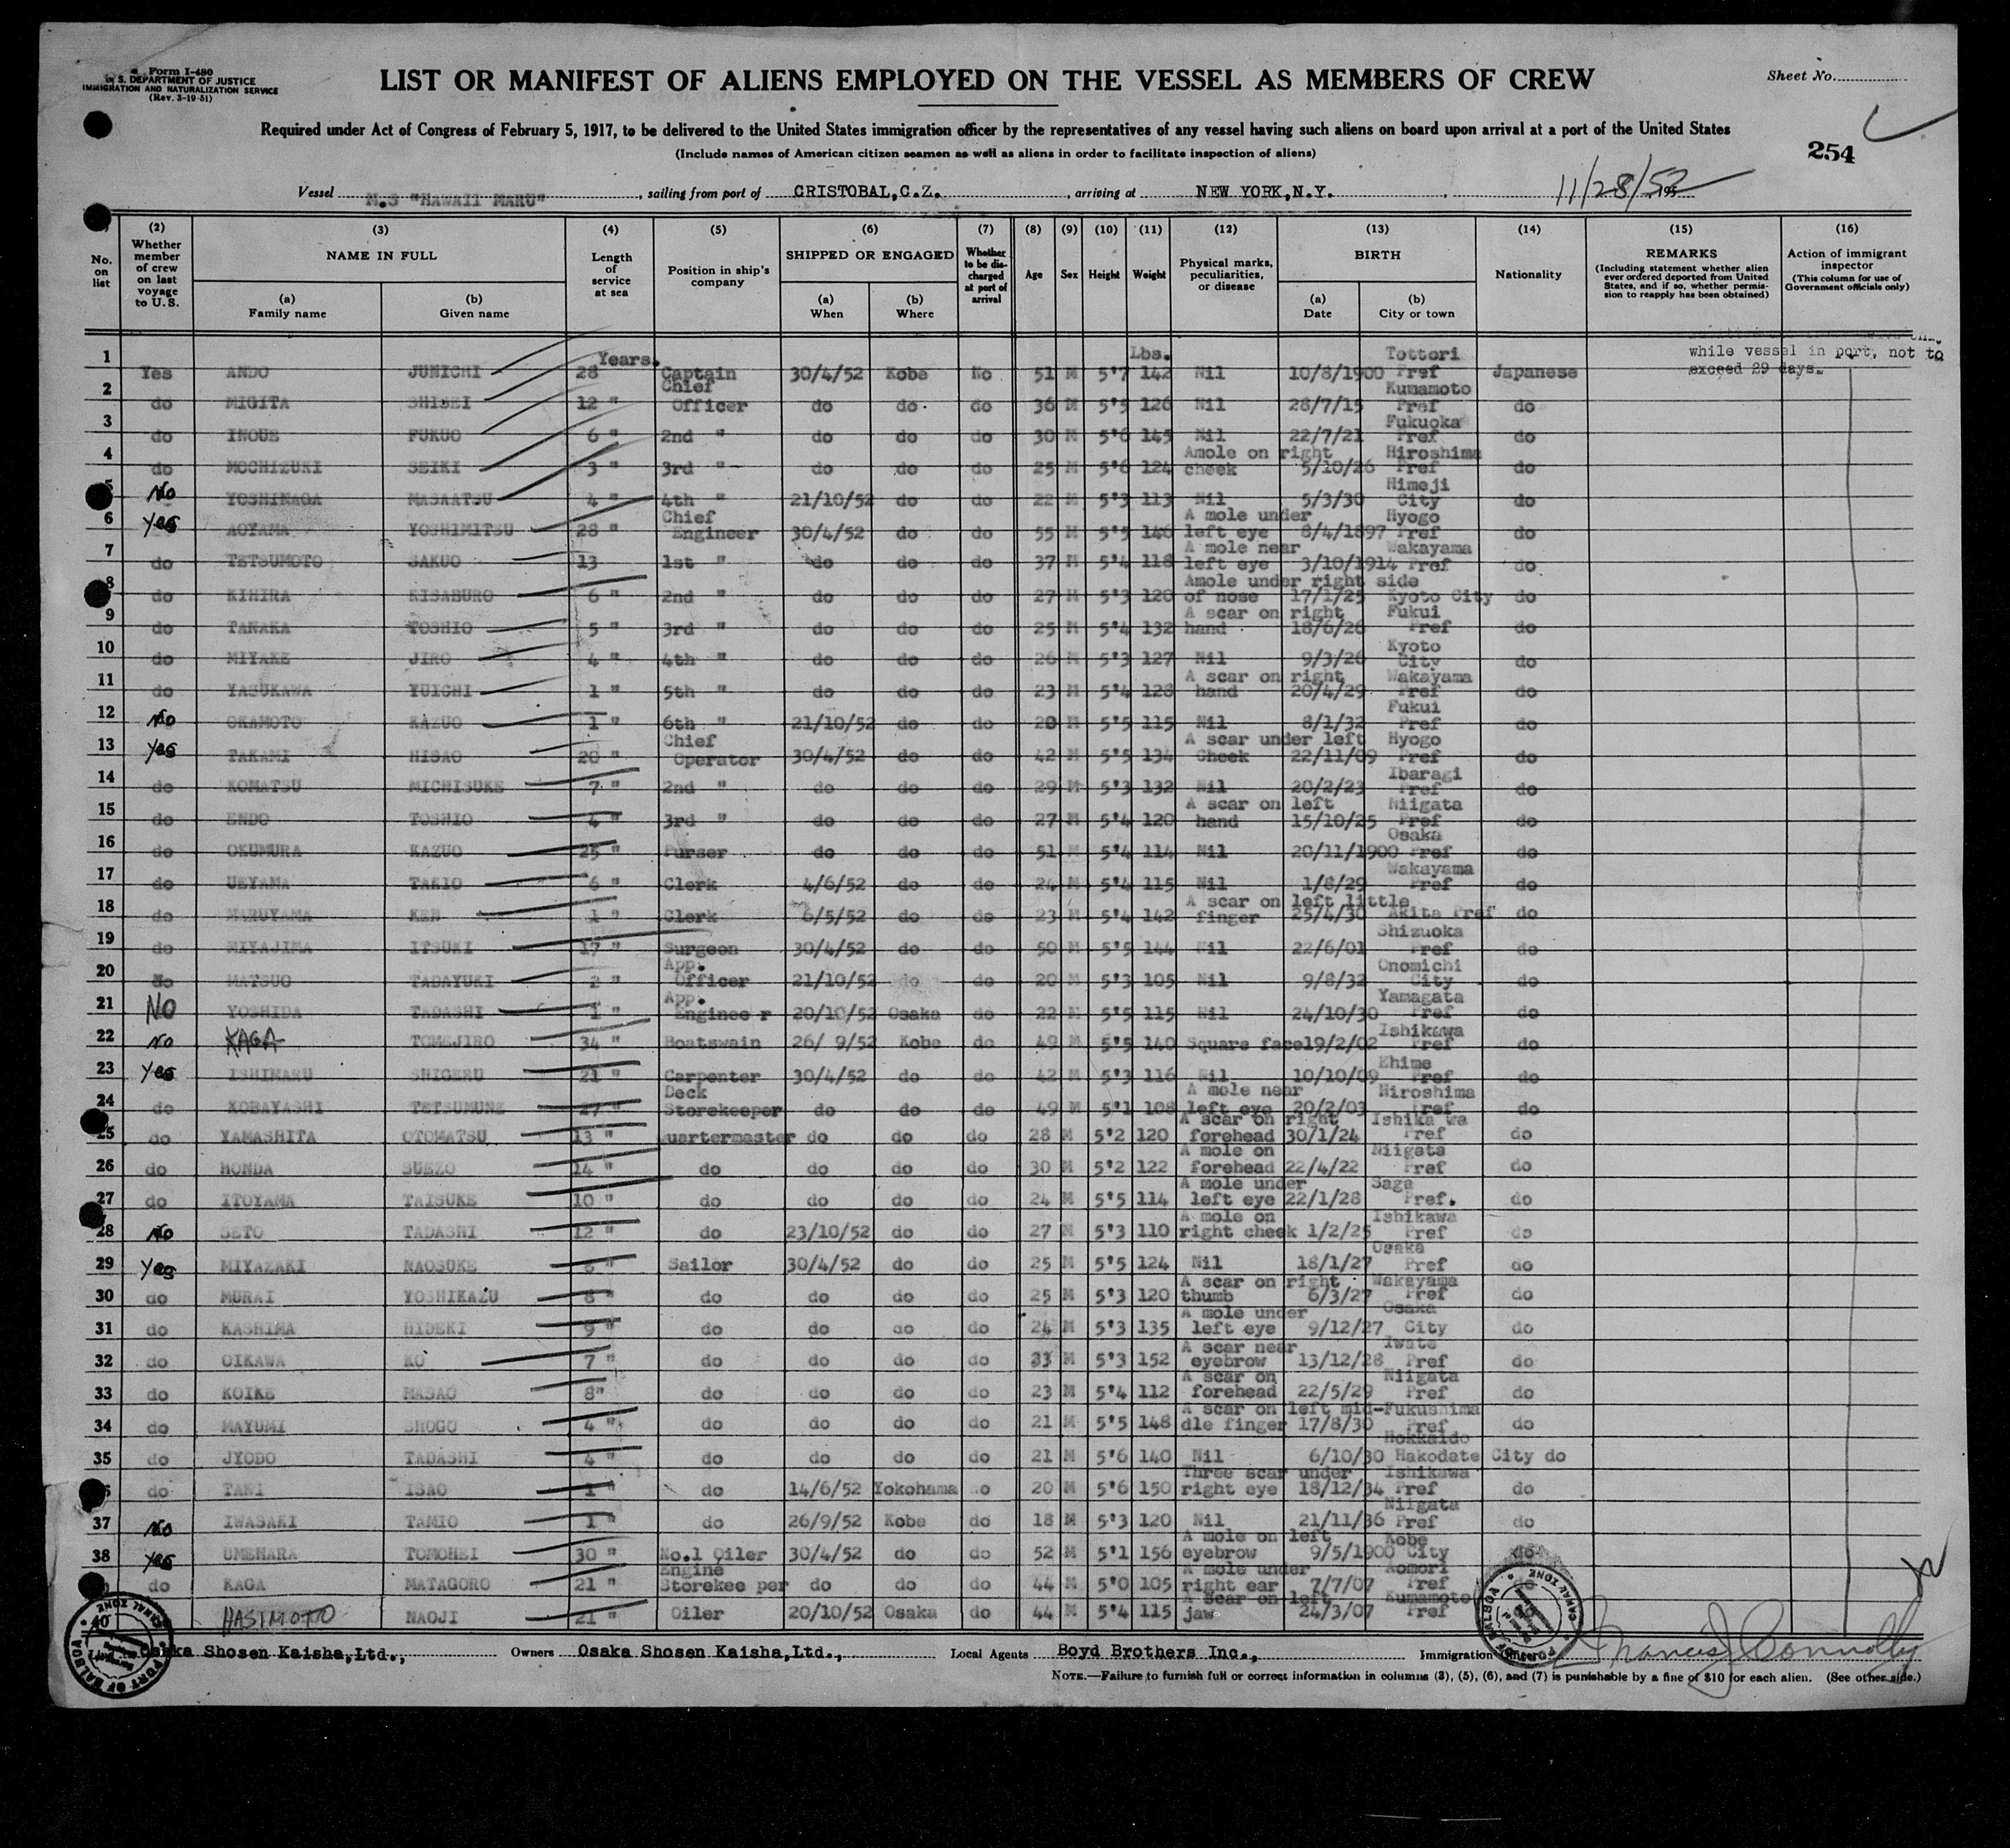 Form I-480
U. S. DEPARTMENT OF JUSTICE
IMMIGRATION AND NATURALIZATION SERVICE
(Rev. 3-19-51)
LIST OR MANIFEST OF ALIENS EMPLOYED ON THE VESSEL AS MEMBERS OF CREW
Sheet No.
Required under Act of Congress of February 5, 1917, to be delivered to the United States immigration officer by the representatives of any vessel having such aliens on board upon arrival at a port of the United States
(Include names of American citizen seamen as well as aliens in order to facilitate inspection of aliens)
254
Vessel M.S "HAWAII MARU", sailing from port of CRISTOBAL,C.Z., arriving at NEW YORK,N.Y., 11/28/52 195
No. on list
(2) Whether member of crew on last voyage to U.S.
(3) NAME IN FULL
(a) Family name
(b) Given name
(4) Length of service at sea
(5) Position in ship's company
(6) SHIPPED OR ENGAGED
(a) When
(b) Where
(7) Whether to be discharged at port of arrival
(8) Age
(9) Sex
(10) Height
(11) Weight
(12) Physical marks, peculiarities, or disease
(13) BIRTH
(a) Date
(b) City or town
(14) Nationality
(15) REMARKS
(Including statement whether alien ever ordered deported from United States, and if so, whether permission to reapply has been obtained)
(16) Action of immigrant inspector
(This column for use of Government officials only)
while vessel in port, not to
exceed 29 days.
Years. Lbs.
1 Yes ANDO JUNICHI 28 Captain 30/4/52 Kobe No 51 M 5'7 142 Nil 10/8/1900 Tottori Pref Japanese
2 do MIGITA SHISEI 12 " Chief Officer do do do 36 M 5'5 126 Nil 28/7/15 Kumamoto Pref do
3 do INOUE FUKUO 6 " 2nd " do do do 30 M 5'6 145 Nil 22/7/21 Fukuoka Pref do
4 do MOCHIZUKI SEIKI 3 " 3rd " do do do 25 M 5'6 124 Amole on right cheek 5/10/26 Hiroshima Pref do
5 No YOSHINAGA MASAATSU 4 " 4th " 21/10/52 do do 22 M 5'3 113 Nil 5/3/30 Himeji City do
6 Yes AOYAMA YOSHIMITSU 28 " Chief Engineer 30/4/52 do do 55 M 5'5 140 A mole under left eye 8/4/1897 Hyogo Pref do
7 do TETSUMOTO SAKUO 13 1st " do do do 37 M 5'4 118 A mole near left eye 3/10/1914 Wakayama Pref do
8 do KIHIRA KISABURO 6 " 2nd " do do do 27 M 5'3 120 Amole under right side of nose 17/1/25 Kyoto City do
9 do TANAKA TOSHIO 5 " 3rd " do do do 25 M 5'4 132 A scar on right hand 18/6/26 Fukui Pref do
10 do MIYAKE JIRO 4 " 4th " do do do 26 M 5'3 127 Nil 9/3/26 Kyoto City do
11 do YASUKAWA YUICHI 1 " 5th " do do do 23 M 5'4 128 A scar on right hand 20/4/29 Wakayama Pref do
12 No OKAMOTO KAZUO 1 " 6th " 21/10/52 do do 20 M 5'5 115 Nil 8/1/32 Fukui Pref do
13 Yes TAKAMI HISAO 20 " Chief Operator 30/4/52 do do 42 M 5'5 134 A scar under left Cheek 22/11/09 Hyogo Pref do
14 do KOMATSU MICHISUKE 7 " 2nd " do do do 29 M 5'3 132 Nil 20/2/23 Ibaragi Pref do
15 do ENDO TOSHIO 4 " 3rd " do do do 27 M 5'4 120 A scar on left hand 15/10/25 Niigata Pref do
16 do OKUMURA KAZUO 25 " Purser do do do 51 M 5'4 114 Nil 20/11/1900 Osaka Pref do
17 do UEYAMA TAKIO 6 " Clerk 4/6/52 do do 24 M 5'4 115 Nil 1/8/29 Wakayama Pref do
18 do MARUYAMA KEN 1 " Clerk 6/5/52 do do 23 M 5'4 142 A scar on left little finger 25/4/30 Akita Pref do
19 do MIYAJIMA ITSUKI 17 " Surgeon 30/4/52 do do 50 M 5'5 144 Nil 22/6/01 Shizuoka Pref do
20 No MATSUO TADAYUKI 2 " App. Officer 21/10/52 do do 20 M 5'3 105 Nil 9/8/32 Onomichi City do
21 NO YOSHIDA TADASHI 1 " App. Enginee r 20/10/52 Osaka do 22 M 5'5 115 Nil 24/10/30 Yamagata Pref do
22 No KAGA TOMEJIRO 34 " Boatswain 26/ 9/52 Kobe do 49 M 5'5 140 Square face 19/2/02 Ishikawa Pref do
23 Yes ISHIMARU SHIGERU 21 " Carpenter 30/4/52 do do 42 M 5'3 116 Nil 10/10/09 Ehime Pref do
24 do KOBAYASHI TETSUMUNE 27 " Deck Storekeeper do do do 49 M 5'1 108 A mole near left eye 20/2/03 Hiroshima Pref do
25 do YAMASHITA OTOMATSU 13 " uartermaster do do do 28 M 5'2 120 A scar on right forehead 30/1/24 Ishika wa Pref do
26 do HONDA SUEZO 14 " do do do do 30 M 5'2 122 A mole on forehead 22/4/22 Niigata Pref do
27 do ITOYAMA TAISUKE 10 " do do do do 24 M 5'5 114 A mole under left eye 22/1/28 Saga Pref. do
28 No SETO TADASHI 12 " do 23/10/52 do do 27 M 5'3 110 A mole on right cheek 1/2/25 Ishikawa Pref do
29 Yes MIYAZAKI NAOSUKE 6 " Sailor 30/4/52 do do 25 M 5'5 124 Nil 18/1/27 Osaka Pref do
30 do MURAI YOSHIKAZU 8 " do do do do 25 M 5'3 120 A scar on right thumb 6/3/27 Wakayama Pref do
31 do KASHIMA HIDEKI 9 " do do do do 24 M 5'3 135 A mole under left eye 9/12/27 Osaka City do
32 do OIKAWA KO 7 " do do do do 23 M 5'3 152 A scar near eyebrow 13/12/28 Iwate Pref do
33 do KOIKE MASAO 8" do do do do 23 M 5'4 112 A scar on forehead 22/5/29 Niigata Pref do
34 do MAYUMI SHOGO 4 " do do do do 21 M 5'5 148 A scar on left mid-dle finger 17/8/30 Fukushima Pref do
35 do JYODO TADASHI 4 " do do do do 21 M 5'6 140 Nil 6/10/30 Hokkaido Hakodate City do
do TANI ISAO 1 " do 14/6/52 Yokohama do 20 M 5'6 150 Three scar under right eye 18/12/34 Ishikawa Pref do
37 No IWASAKI TAMIO 1 " do 26/9/52 Kobe do 18 M 5'3 120 Nil 21/11/36 Niigata Pref do
38 Yes UMEHARA TOMOHEI 30 " No.1 Oiler 30/4/52 do do 52 M 5'1 156 A mole on left eyebrow 9/5/1900 Kobe City do
do KAGA MATAGORO 21 " Engine Storekee per do do do 44 M 5'0 105 A mole under right ear 7/7/07 Aomori Pref
40 HASIMOTO NAOJI 21 " Oiler 20/10/52 Osaka do 44 M 5'4 115 A scar on left jaw 24/3/07 Kumamoto Pref
Osaka Shosen Kaisha,Ltd., Owners Osaka Shosen Kaisha,Ltd., Local Agents Boyd Brothers Inc., Immigration Officer Francis J. Connolly
NOTE.—Failure to furnish full or correct information in columns (3), (5), (6), and (7) is punishable by a fine of $10 for each alien. (See other side.)
PORT OF BALBOA
CANAL ZONE
PORT OF BALBOA
CANAL ZONE